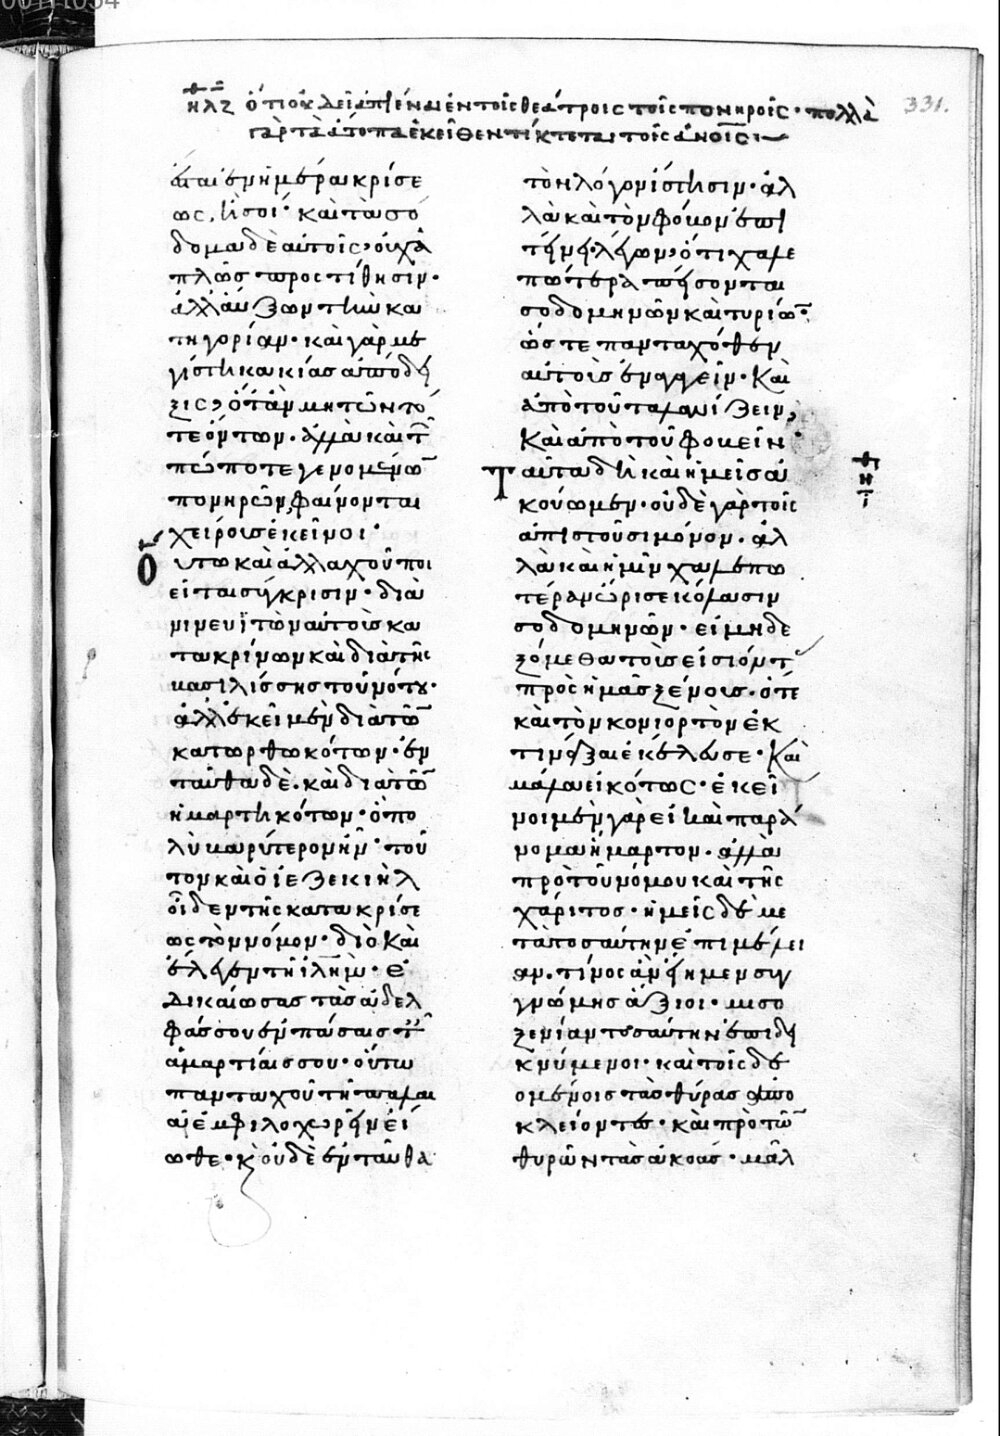 331.
ὅτι οὐ δεῖ ἀπιέναι ἐν τοῖς θεάτροις τοῖς πονηροῖς· πολλὰ
γὰρ τὰ ἄτοπα ἐκεῖθεν τίκτεται τοῖς ἀνοις:
ἔσται ἐν ἡμέραι κρίσε
ως, ἢ σοί· καὶ τὰ σό
δομα δὲ αὐτοῖς, οὐχ ἁ
πλῶς προστίθησιν·
ἀλλ' αὔξων τὴν κα
τηγορίαν· καὶ γὰρ με
γίστη κακίας ἀπόδει
ξις, ὅταν μὴ τῶν τό
τε ὄντων· ἀλλὰ καὶ τῶ
πώποτε γενομένω
πονηρῶν, φαίνονται
χείρους ἐκεῖνοι·
Οὕτω καὶ ἀλλαχοῦ ποι
εῖται σύγκρισιν· διὰ
νινευϊτῶν αὐτοὺς κα
τακρίνων καὶ διὰ τῆς
βασιλίσσης τοῦ νότου·
ἀλλ' ἐκεῖ μὲν διὰ τῶ
κατωρθωκότων· ἐν
ταῦθα δὲ καὶ διὰ τῶ
ἡμαρτηκότων· ὃ πο
λὺ βαρύτερον ἦν· τοῦ
τον καὶ ὁ ἰεζεκιὴλ
οἶδεν τῆς κατακρίσε
ως τὸν νόμον· διὸ καὶ
ἔλεγεν τῇ ἰλημ· ἐ
δικαίωσας τὰς ἀδελ
φάς σου ἐν πάσαις τ
ἁμαρτίαις σου· οὕτω
πανταχοῦ τῇ παλαι
ᾷ ἐμφιλοχωρεῖν εἴ
ωθε· κ οὐδὲ ἐνταῦθα
τὸν λόγον ἵστησιν· ἀλ
λὰ καὶ τὸν φόβον ἐπι
τείνει λέγων, ὅτι χαλε
πώτερα πείσονται
σοδομηνῶν καὶ τυρίω·
ὥστε πανταχόθεν
αὐτοὺς ἐνάγειν· καὶ
ἀπὸ τοῦ ταλανίζειν,
καὶ ἀπὸ τοῦ φοβεῖν·
Ταῦτα δὴ καὶ ἡμεῖς ἀ
κούωμεν· οὐδὲ γὰρ τοῖς
ἀπιστοῦσι μόνον· ἀλ
λὰ καὶ ἡμῖν χαλεπω
τέραν ὥρισε κόλασιν
σοδομηνῶν· εἰ μὴ δε
ξόμεθα τοὺς εἰσιόντ
πρὸς ἡμᾶς ξένους· ὅτε
καὶ τὸν κονιορτὸν ἐκ
τινάξαι ἐκέλευσε· καὶ
μάλα εἰκότως· ἐκεῖ
νοι μὲν γὰρ εἰ καὶ παρά
νομα ἥμαρτον· ἀλλὰ
πρὸ τοῦ νόμου καὶ τῆς
χάριτος· ἡμεῖς δὲ με
τὰ τοσαύτην ἐπιμέλει
αν· τίνος ἂν εἴημεν συγ
γνώμης ἄξιοι· μισο
ξενίαν τοσαύτην ἐπιδει
κνύμενοι· καὶ τοῖς δε
ομένοις τὰς θύρας ἀπο
κλείοντες· καὶ πρὸ τῶ
θυρῶν τὰς ἀκοάς· μᾶλ